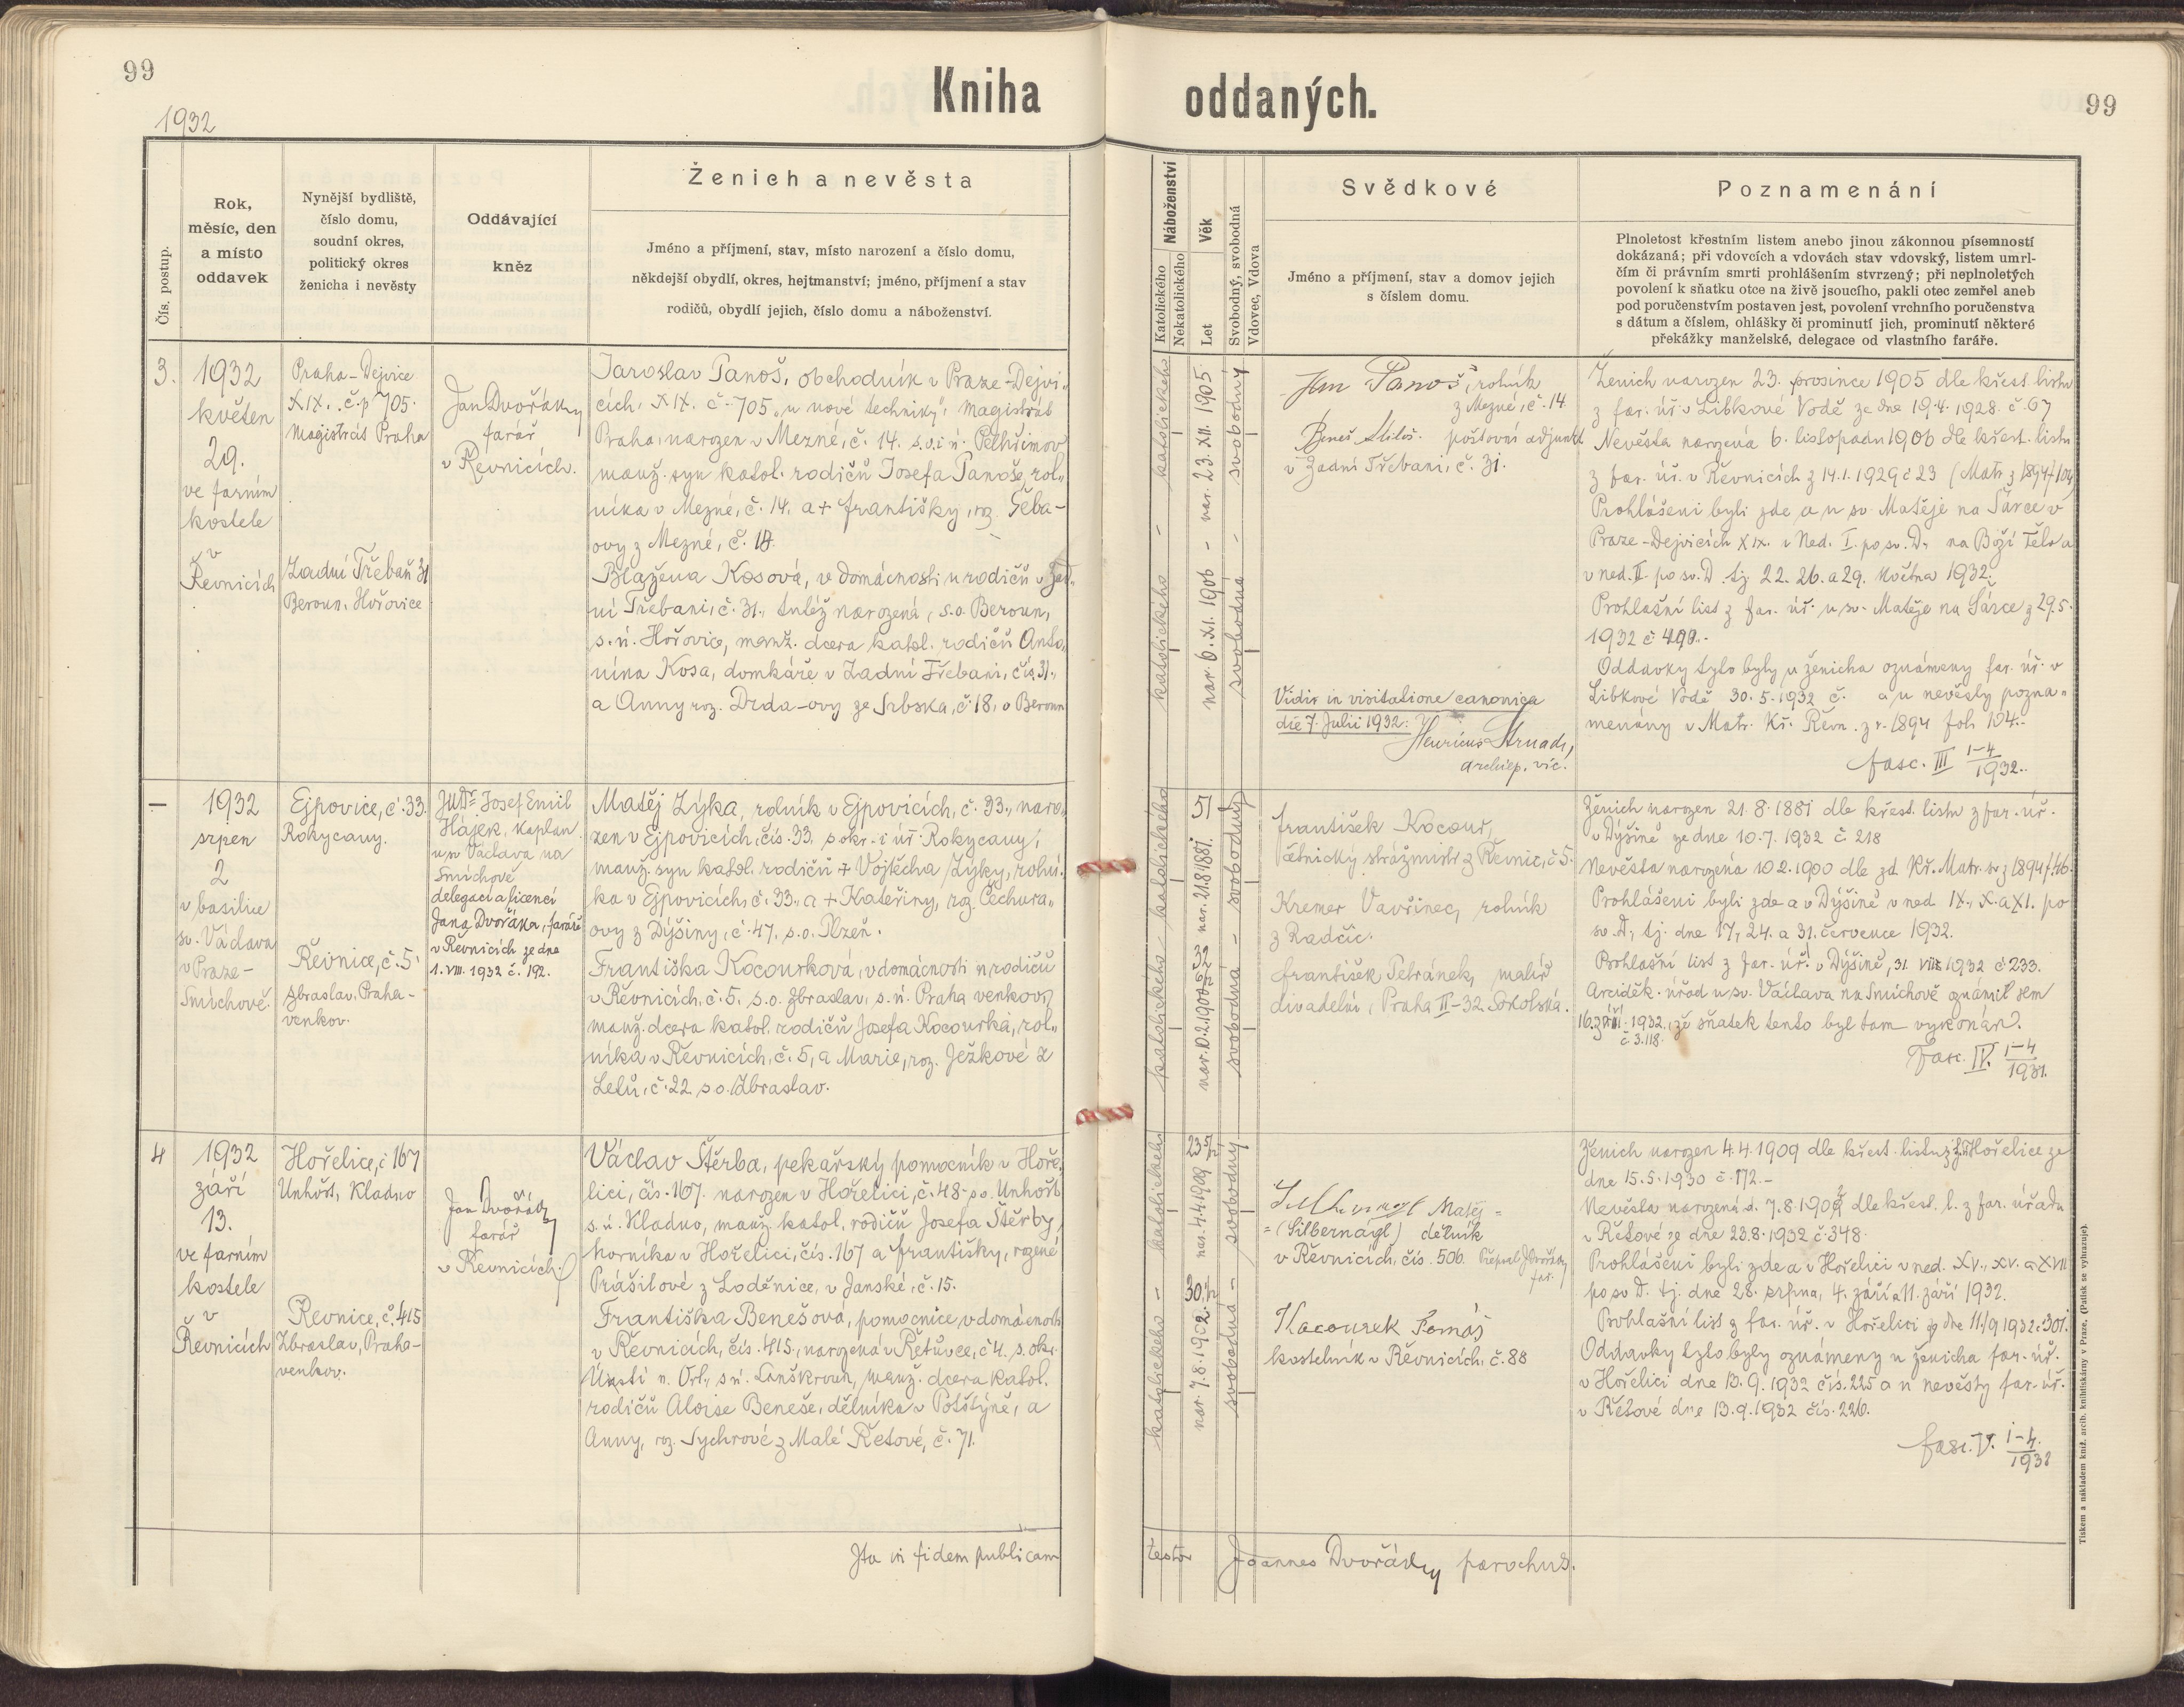 99
Kniha oddaných.
99
1932
Čís. postup.
Rok,
měsíc, den
a místo
oddavek
Nynější bydliště,
číslo domu,
soudní okres,
politický okres
ženicha i nevěsty
Oddávající
kněz
Ženich a nevěsta
Jméno a příjmení, stav, místo narození a číslo domu,
někdejší obydlí, okres, hejtmanství; jméno, příjmení a stav
rodičů, obydlí jejich, číslo domu a náboženství.
Náboženství
Katolického
Nekatolického
Věk
Let
Svobodný, svobodná
Vdovec, Vdova
Svědkové
Jméno a příjmení, stav a domov jejich
s číslem domu.
Poznamenání
Plnoletost křestním listem anebo jinou zákonnou písemností
dokázaná; při vdovcích a vdovách stav vdovský, listem umrl-
čím či právním smrti prohlášením stvrzený; při neplnoletých
povolení k sňatku otce na živě jsoucího, pakli otec zemřel aneb
pod poručenstvím postaven jest, povolení vrchního poručenstva
s dátum a číslem, ohlášky či prominutí jich, prominutí některé
překážky manželské, delegace od vlastního faráře.
3.
1932
květen
29.
ve farním
kostele
v
Řevnicích
Praha-Dejvice
XIX. č.p 705.
Magistrát Praha
Zadní Třebaň 31
Beroun, Hořovice
Jan Dvořák
farář
v Řevnicích.
Jaroslav Panoš, obchodník v Praze-Dejvi-
cích, XIX. č. 705 „u nové techniky", magistrát
Praha, narozen v Mezné, č. 14. s.o. i ú. Pelhřimov
manž. syn katol. rodičů Josefa Panoše, rol-
níka v Mezné, č. 14. a + Františky, roz. Šeba-
ovy z Mezné, č. 18.
Blažena Kosová, v domácnosti u rodičů v Zad-
ní Třebani, č. 31., tutéž narozená, s.o. Beroun,
s.ú. Hořovice, manž. dcera katol. rodičů Anto-
nína Kosa, domkáře v Zadní Třebani, čís 31.,
a Anny roz. Drda-ovy ze Srbska, č. 18, o Beroun
katolického - katolického
nar. 23. XII. 1905 - nar. 6. XI. 1906
svobodný - svobodná
Jan Panoš, rolník
z Mezné, č. 14
Beneš Miloš. poštovní adjunkt
v Zadní Třebani, č. 31.
Vidis in visitatione canonica
die 7. Julii 1932:
Henricus Strnad,
archiep. vic.
Ženich narozen 23. prosince 1905 dle křest. listu
z far. úř. v Libkově Vodě ze dne 19.4. 1928. č. 67
Nevěsta narozená 6. listopadu 1906 dle křest. listu
z far. úř. v Řevnicích z 14.1.1929 č 23 (Matr. z 1894 f 104)
Prohlášeni byli zde a u sv. Matěje na Šárce v
Praze-Dejvicích XIX. v Ned. I. po sv. D., na Boží Tělo a
v ned. II. po sv. D. tj. 22. 26. a 29. května 1932.
Prohlašní list z far. úř. u sv. Matěje na Šárce z 29.5.
1932 č 490.-
Oddavky tyto byly u ženicha oznámeny far. úř. v
Libkově Vodě 30.5.1932 č. a u nevěsty pozna-
menány v Matr. Kř. Řevn. z r. 1894 fol. 104.-
fasc. III 1-4
1932.
—
1932
srpen
2
v basilice
sv. Václava
v Praze-
Smíchově.
Ejpovice, č. 33.
Rokycany.
Řevnice, č. 5.
Zbraslav, Praha-
venkov.
JUDr Josef Emil
Hájek, kaplan
u sv Václava na
Smíchově
delegací a licencí
Jana Dvořáka, faráře
v Řevnicích ze dne
1. VIII. 1932 č. 192.
Matěj Zýka, rolník v Ejpovicích, č. 33., naro-
zen v Ejpovicích, čís. 33. s okr. i úř. Rokycany,
manž. syn katol. rodičů + Vojtěcha Zýky, rolní-
ka v Ejpovicích, č. 33., a + Kateřiny, roz. Čechura-
ovy z Dýšiny, č. 47. s.o. Plzeň.
Františka Kocourková, v domácnosti u rodičů
v Řevnicích, č. 5. s.o. Zbraslav, s.ú. Praha venkov,
manž. dcera katol. rodičů Josefa Kocourka, rol-
níka v Řevnicích, č. 5, a Marie, roz. Ježkové z
Letů, č. 22 s o. Zbraslav.
katolického - katolického
51 nar. 21.8.1881.
32
nar. 10.2.1900
svobodný - svobodná
František Kocour,
četnický strážmistr z Řevnic, č 5.
Kremer Vavřinec, rolník
z Radčic.
František Petránek, malíř
divadelní, Praha II-32 Sokolská.
Ženich narozen 21.8.1881 dle křest. listu z far. úř.
v Dýšině ze dne 10.7.1932 č 218
Nevěsta narozena 10.2.1900 dle zd. Kř. Matr. sv z 1894 f.46.
Prohlášeni byli zde a v Dýšině v ned IX., X. a XI. po
sv. D., tj. dne 17, 24. a 31. července 1932.
Prohlašní list z far. úř. v Dýšině, 31. VII. 1932 č 233.
Arciděk. úřad u sv. Václava na Smíchově oznámil sem
16. září 1932, že sňatek tento byl tam vykonán.
č 3.118.
Fasc. IV. 1-4
1931.
4
1932
září
13.
ve farním
kostele
v
Řevnicích
Hořelice, č 167
Unhošť, Kladno
Řevnice, č. 415
Zbraslav, Praha-
venkov.
Jan Dvořák
farář
v Řevnicích.
Václav Štěrba, pekařský pomocník v Hoře-
lici, čís. 167. narozen v Hořelici, č. 48. s o. Unhošť
s.ú. Kladno, manž. katol. rodičů Josefa Štěrby,
horníka v Hořelici, čís. 167 a Františky, rozené
Prášilové z Loděnice, v Janské, č. 15.
Františka Benešová, pomocnice v domácnosti
v Řevnicích, čís. 415., narozená v Řetůvce, č 4. s. okr.
Ústí n. Orl., s ú. Lanškroun, manž. dcera katol.
rodičů Aloise Beneše, dělníka v Potštýně, a
Anny, roz. Sychrové z Malé Řetové, č. 71.
katolického - katolického
23 5/12
nar. 4.4.1909
30 1/12
nar. 7.8.1902
svobodný - svobodná
Matěj =
= (Silbernágl) dělník
v Řevnicích, čís. 506. Přepsal J Dvořák
far.
Kocourek Tomáš
kostelník v Řevnicích, č. 88
Ženich narozen 4.4.1909 dle křest. listu z Hořelice ze
dne 15.5.1930 č. 172.-
Nevěsta narozená d. 7.8.1902 dle křest. l. z far. úřadu
v Řetové ze dne 23.8.1932 č. 348.
Prohlášeni byli zde a v Hořelici v ned. XV., XV. a XVII
po sv D. tj. dne 28. srpna, 4. září a 11. září 1932.
Prohlašní list z far. úř. v Hořelici ze dne 11./9 1932 č. 301.
Oddavky tyto byly oznámeny u ženicha far. úř.
v Hořelici dne 13.9.1932 čís. 225 a u nevěsty far. úř.
v Řetové dne 13.9.1932 čís. 226.
fasc. V. 1-4.
1932
Ita in fidem publicam
testor Joannes Dvořák parochus.
Tiskem a nákladem kníž. arcib. knihtiskárny v Praze, (Patisk se vyhrazuje).